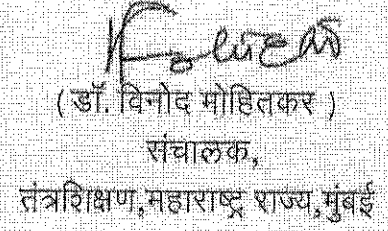 ( डॉ. विनोद मोहितकर )
संचालक,
तंत्रशिक्षण,महाराष्ट्र राज्य,मुंबई